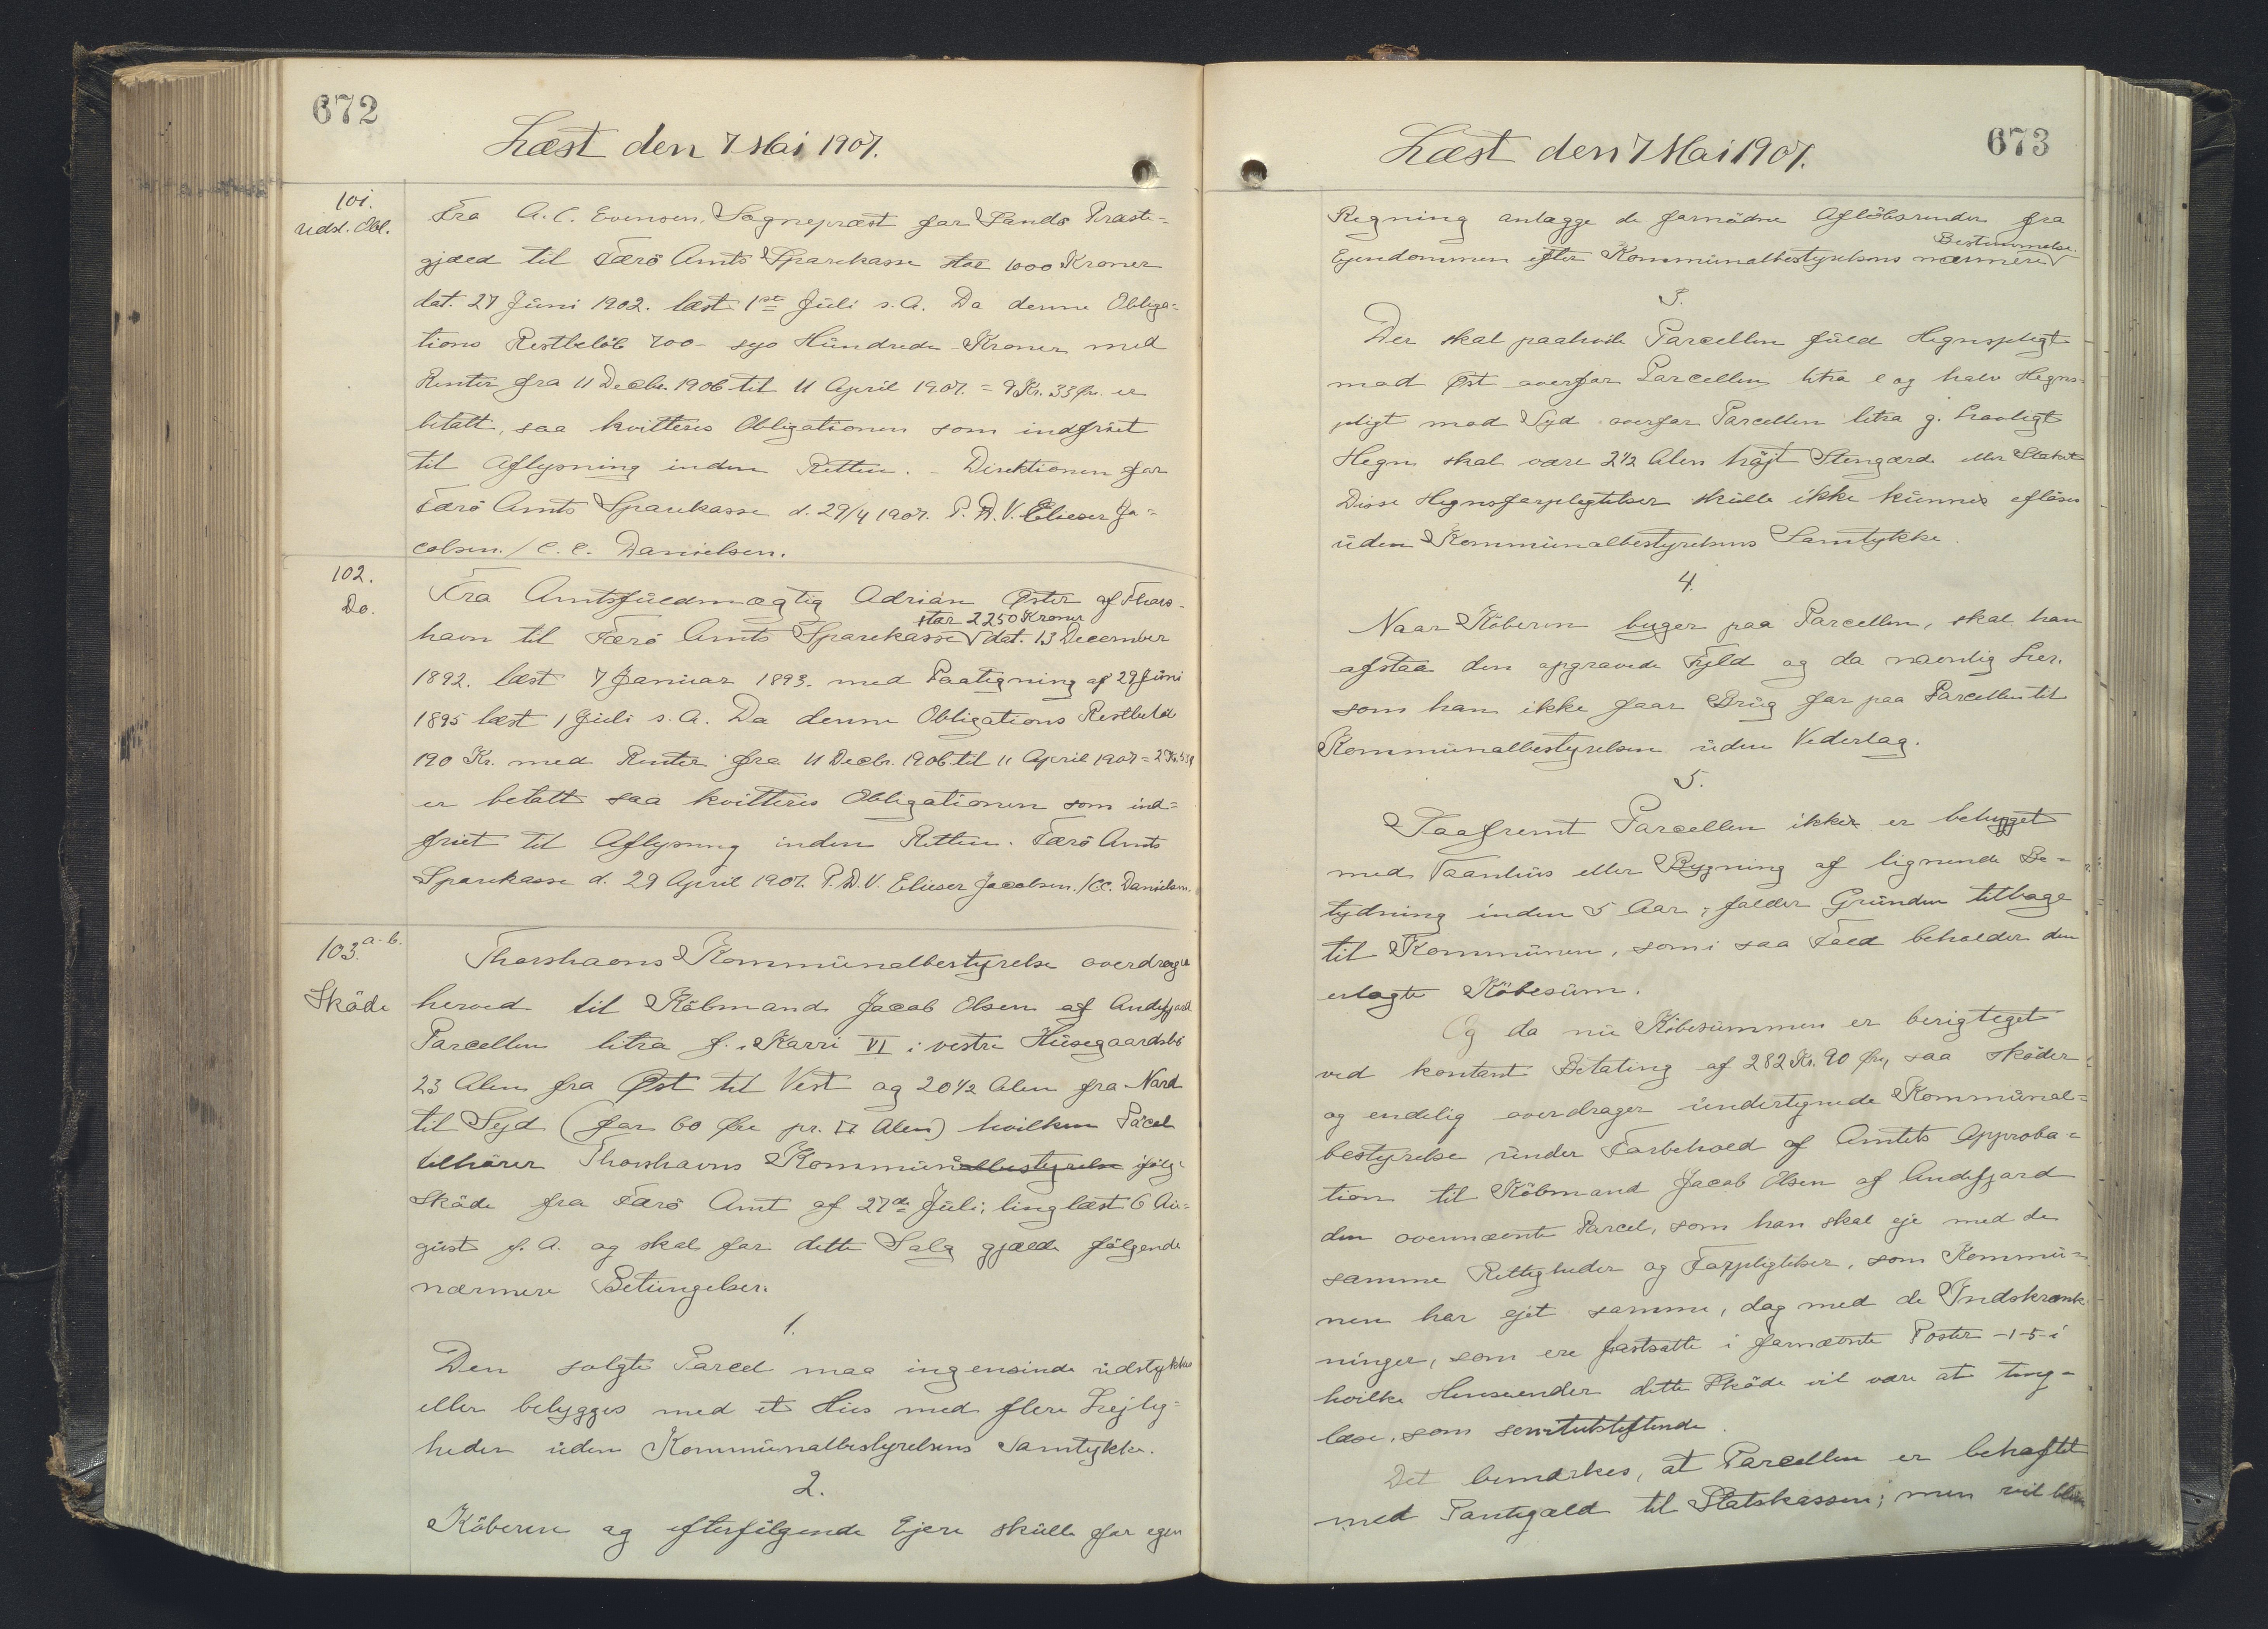 672
Læst den 7 Mai 1907.
101.
udsl. Obl.
Fra A. C. Evensen, Sognepræst for Sands Præste=
gjæld til Færö Amts Sparekasse stor 1000 Kroner
dat. 27 Juni 1902. læst 1ste Juli s. A. Da denne Obliga=
tions Restbelöb 700 - syv Hundrede - Kroner med
Renter fra 11 Decbr. 1906 til 11 April 1907. = 9 Kr. 33 Øre er
betalt, saa kvitteres Obligationen som indfriet
til Aflysning inden Retten. - Direktionen for
Færö Amts Sparekasse d. 29/4 1907. P. D. V. Elieser Ja=
cobsen. / C. C. Danielsen.
102.
Do.
Fra Amtsfuldmægtig Adrian Øster af Thors-
havn til Færö Amts Sparekasse stor 2250 Kroner dat. 13 December
1892. læst 7 Januar 1893. med Paategning af 29 Juni
1895 læst 1 Juli s. A. Da denne Obligations Restbelöb
190 Kr. med Renter fra 11 Decbr. 1906 til 11 April 1907 = 2 Kr. 53 Ø
er betalt saa kvitteres Obligationen som ind=
friet til Aflysning inden Retten. Færö Amts
Sparekasse d. 29 April 1907. P. D. V. Elieser Jacobsen. / C.C. Danielsen.
103. a-b.
Sköde
Thorshavns Kommunalbestyrelse overdrager
herved til Köbmand Jacob Olsen af Andefjord
Parcellen litra f. i Karri VI i vestre Husegaardsbö
23 Alen fra Øst til Vest og 20 1/2 Alen fra Nord
til Syd (for 60 Øre pr. □ Alen) hvilken Pacel
tilhörer Thorshavns Kommunalbestyrelse ifölge
Sköde fra Færö Amt af 27de Juli, tinglæst 6 Au=
gust f. A. og skal for dette Salg gjælde fölgende
nærmere Betingelser.
1.
Den solgte Parcel maa ingensinde udstykkes
eller bebygges med et Hus med flere Lejlig=
heder uden Kommunalbestyrelsens Samtykke.
2.
Köberen og efterfölgende Ejere skulle for egen
673
Læst den 7 Mai 1907.
Regning anlægge de fornödne Aflöbsrender fra
Ejendommen efter Kommunalbestyrelsens nærmere Bestemmelse.
3.
Der skal paahvile Parcellen fuld Hegnspligt
mod Øst overfor Parcellen litra e og halv Hegns=
pligt mod Syd overfor Parcellen litra g. Lovligt
Hegn skal være 2 1/2 Alen höjt Stengærde eller Stakit
Disse Hegnsforpligtelser skulle ikke kunne aflöses
uden Kommunalbestyrelsens Samtykke.
4.
Naar Köberen byger paa Parcellen, skal han
afstaa den opgravede Fyld og da navnlig Ler.
som han ikke faar Brug for paa Parcellen til
Kommunalbestyrelsen uden Vederlag.
5.
Saafremt Parcellen ikke er bebygget
med Vaanhus eller Bygning af lignende Be=
tydning inden 5 Aar, falder Grunden tilbage
til Kommunen, som i saa Fald beholder den
erlagte Köbesum.
Og da nu Köbesummen er berigtiget
ved kontant Betaling af 282 Kr. 90 Øre, saa sköder
og endelig overdrager undertegnede Kommunal=
bestyrelse under Forbehold af Amtets Approba=
tion til Köbmand Jacob Olsen af Andefjord
den ovennævnte Parcel, som han skal eje med de
samme Rettigheder og Forpligtelser, som Kommu=
nen har ejet samme, dog med de Indskrænk=
ninger, som ere fastsatte i fornævnte Poster -1-5- i
hvilke Henseender dette Sköde vil være at ting=
læse, som servitutstiftende.
Det bemærkes, at Parcellen er behæftet
med Pantegæld til Statskassen; men vil blive